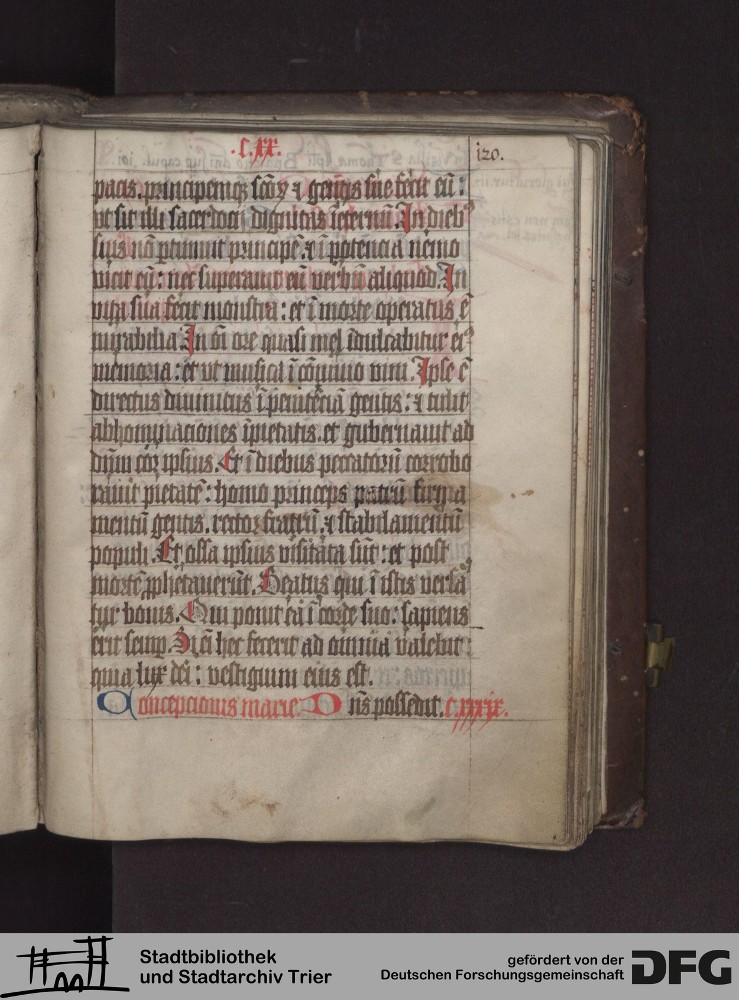 .C.xx.
120.
pacis. principemq; sc̄oꝝ ⁊ gentis sue fecit eū:
vt sit illi sacerdocii dignitas ī eternū. In dieb⁹
suis nō ptimuit principē. ⁊ ī potencia nemo
vicit eū: nec superauit eū verbū aliquod. In
vita sua fecit monstra: et ī morte operatus ē
mirabilia. In oī ore quasi mel īdulcabitur ei⁹
memoria: et vt musica ī cōuiuio vini. Ipse ē
directus diuinitus ī penitēciā gentis: ⁊ tulit
abhominaciones īpietatis. et gubernauit ad
dn̄m cor ipsius. Et ī diebus peccatorū corrobo
rauit pietatē: homo princeps fratrū firma
mentū gentis. rector fratrū. ⁊ stabilamentū
populi. Et ossa ipsius visitata sūt: et post
mortē ꝓphetauerūt. Beatus qui ī istis versa
tur bonis. Qui ponit ea ī corde suo: sapiens
erit semp. Si eī hec fecerit ad omnia valebit:
quia lux dei: vestigium eius est.
Concepcionis marie. Dn̄s possedit. C.xxxix.
Stadtbibliothek
und Stadtarchiv Trier
gefördert von der
Deutschen Forschungsgemeinschaft
DFG